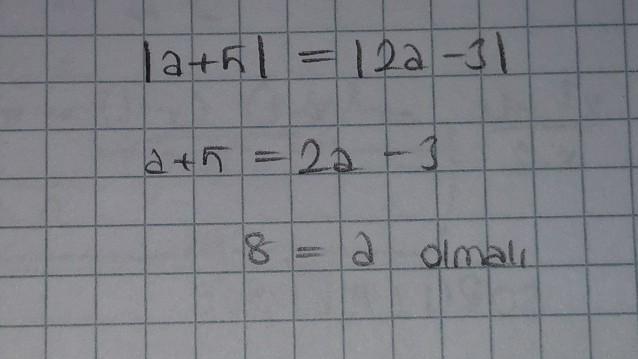 |a+5| = |2a-3|
a+5 = 2a - 3
8 = a olmalı